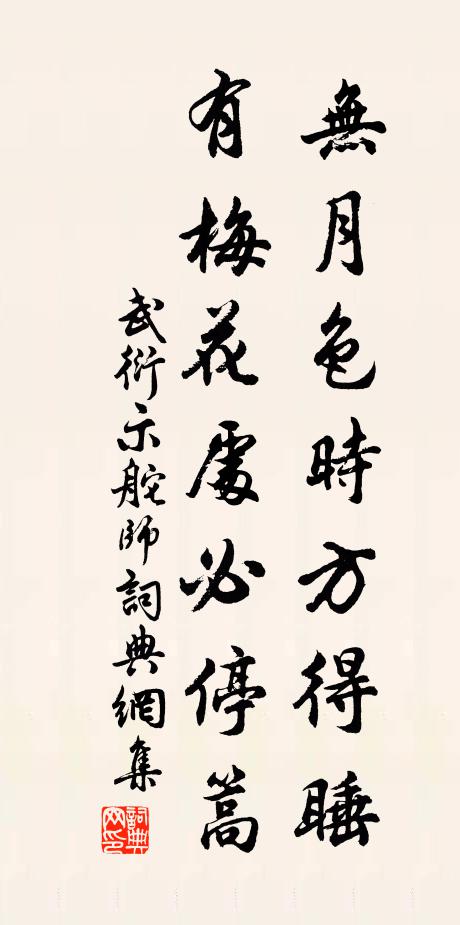 無月色時方得睡
有梅花處必停篙
武衍示舵師詞典網集
詞典
网印